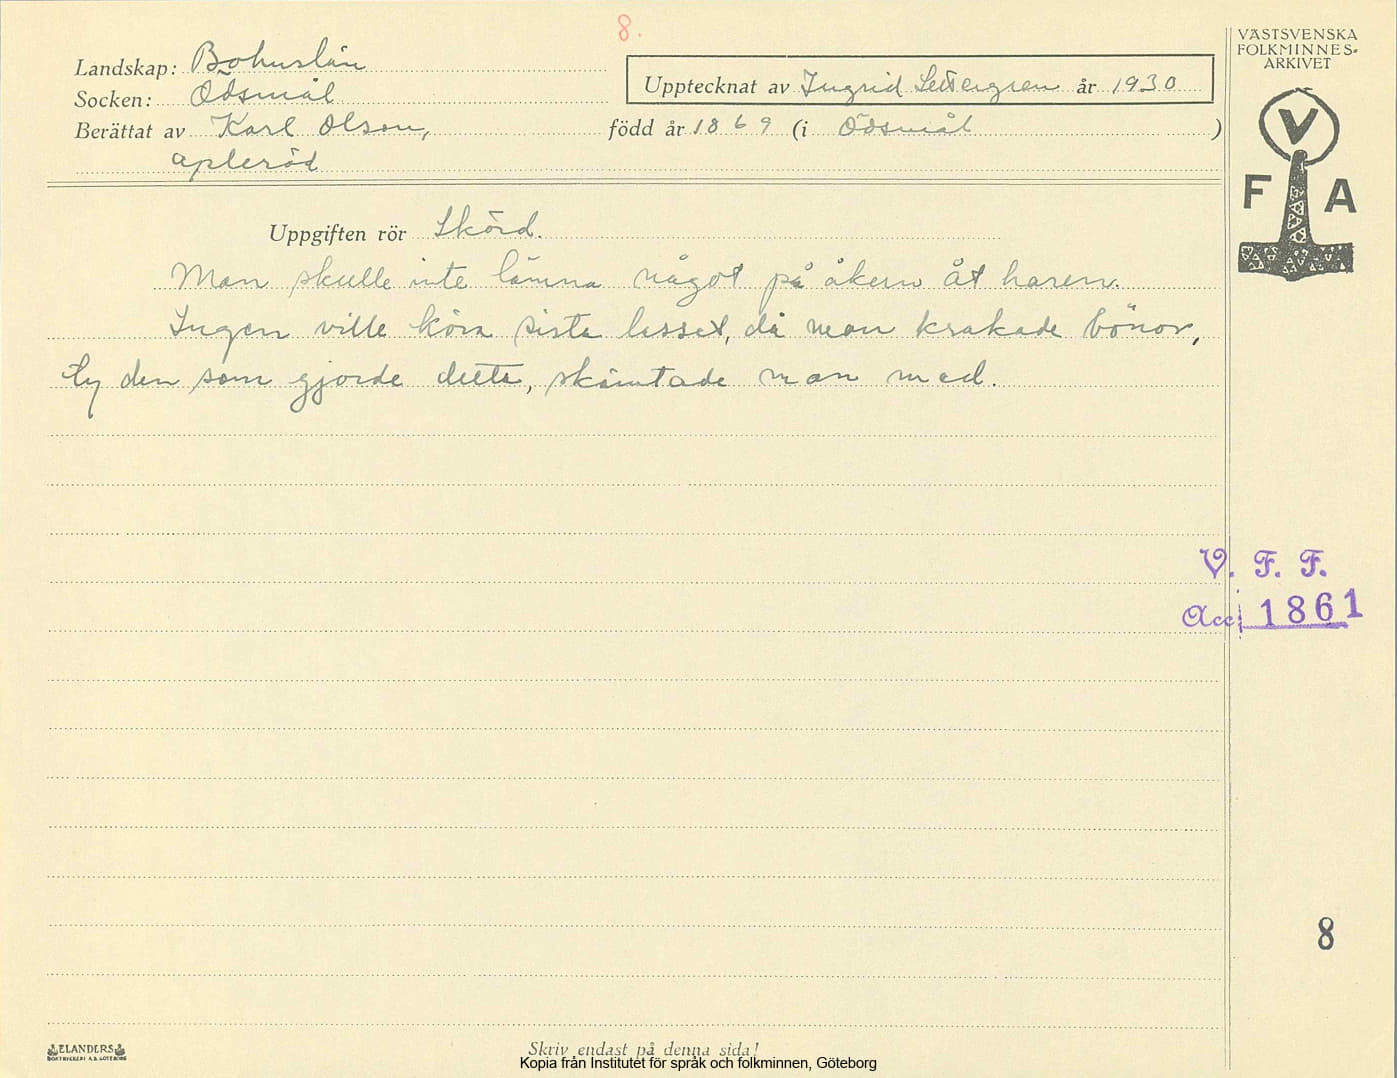 8.
VÄSTSVENSKA
FOLKMINNES-
ARKIVET
Landskap: Bohuslän
Upptecknat av Ingrid Settergren år 1930
Socken: Ödsmål
Berättat av Karl Olson, född år 1869 (i Ödsmål)
Apleröd
V
F A
Uppgiften rör Skörd.
Man skulle inte lämna något på åkern åt haren.
Ingen ville köra sista lasset, då man krakade bönor,
ty den som gjorde detta, skämtade man med.
V. F. F.
Acc. 1861
8
ELANDERS
BOKTRYCKERI A.B. GÖTEBORG
Skriv endast på denna sida!
Kopia från Institutet för språk och folkminnen, Göteborg